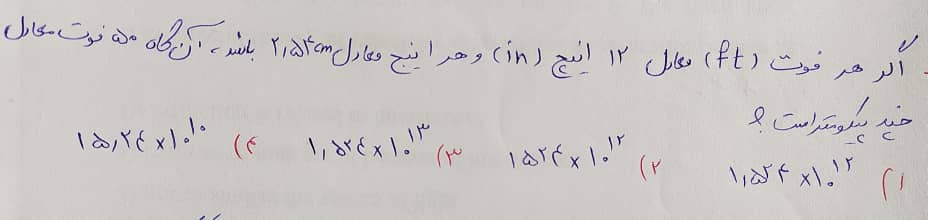 اگر هر فوت (ft) معادل ۱۲ اینچ (in) و هر اینچ معادل ۲٫۵۴cm باشد، آن گاه ۵۰ فوت معادل
چند پیکومتر است؟
۱) ۱٫۵۲۴ × ۱۰^۱۲ ۲) ۱۵۲۴ × ۱۰^۱۲ ۳) ۱٫۵۲۴ × ۱۰^۱۳ ۴) ۱۵٫۲۴ × ۱۰^۱۰